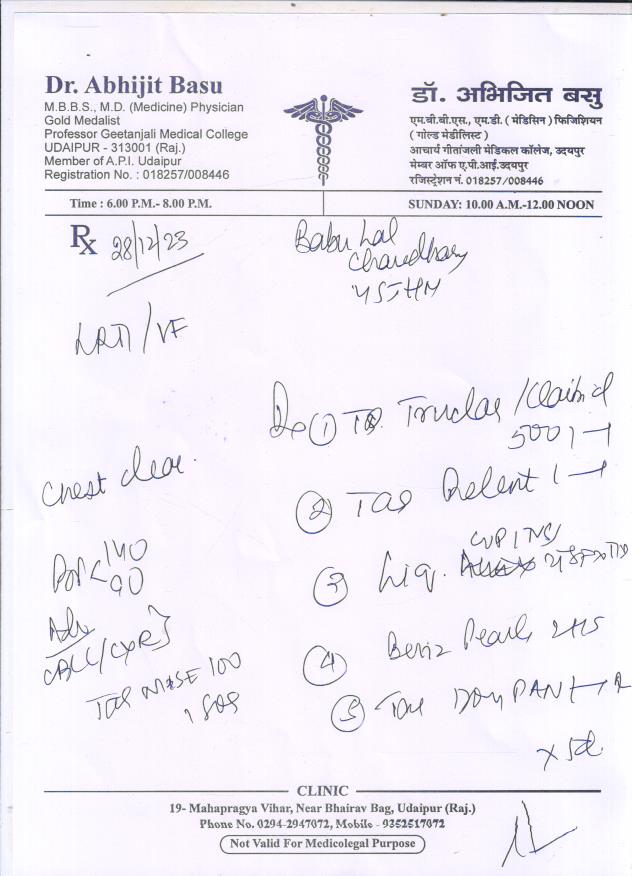 Dr. Abhijit Basu
M.B.B.S., M.D. (Medicine) Physician
Gold Medalist
Professor Geetanjali Medical College
UDAIPUR - 313001 (Raj.)
Member of A.P.I. Udaipur
Registration No. : 018257/008446
डॉ. अभिजित बसु
एम.बी.बी.एस., एम.डी. ( मेडिसिन ) फिजिशियन
( गोल्ड मेडीलिस्ट )
आचार्य गीतांजली मेडिकल कॉलेज, उदयपुर
मेम्बर ऑफ ए.पी.आई.उदयपुर
रजिस्ट्रेशन नं. 018257/008446
Time : 6.00 P.M.- 8.00 P.M.
SUNDAY: 10.00 A.M.-12.00 NOON
Rx 28/12/23
Babu Lal
Chaudhary
LRTI/VF
500 1-1
Chest clear.
② Tab Relent 1-1
③ Liq.
BP < 140
90
Adv
CBC/CXR}
Tab NISE 100
1 SOS
④ Pearls
⑤ Tab DOM PAN
x 5d
CLINIC
19- Mahapragya Vihar, Near Bhairav Bag, Udaipur (Raj.)
Phone No. 0294-2947072, Mobile - 9352517072
Not Valid For Medicolegal Purpose